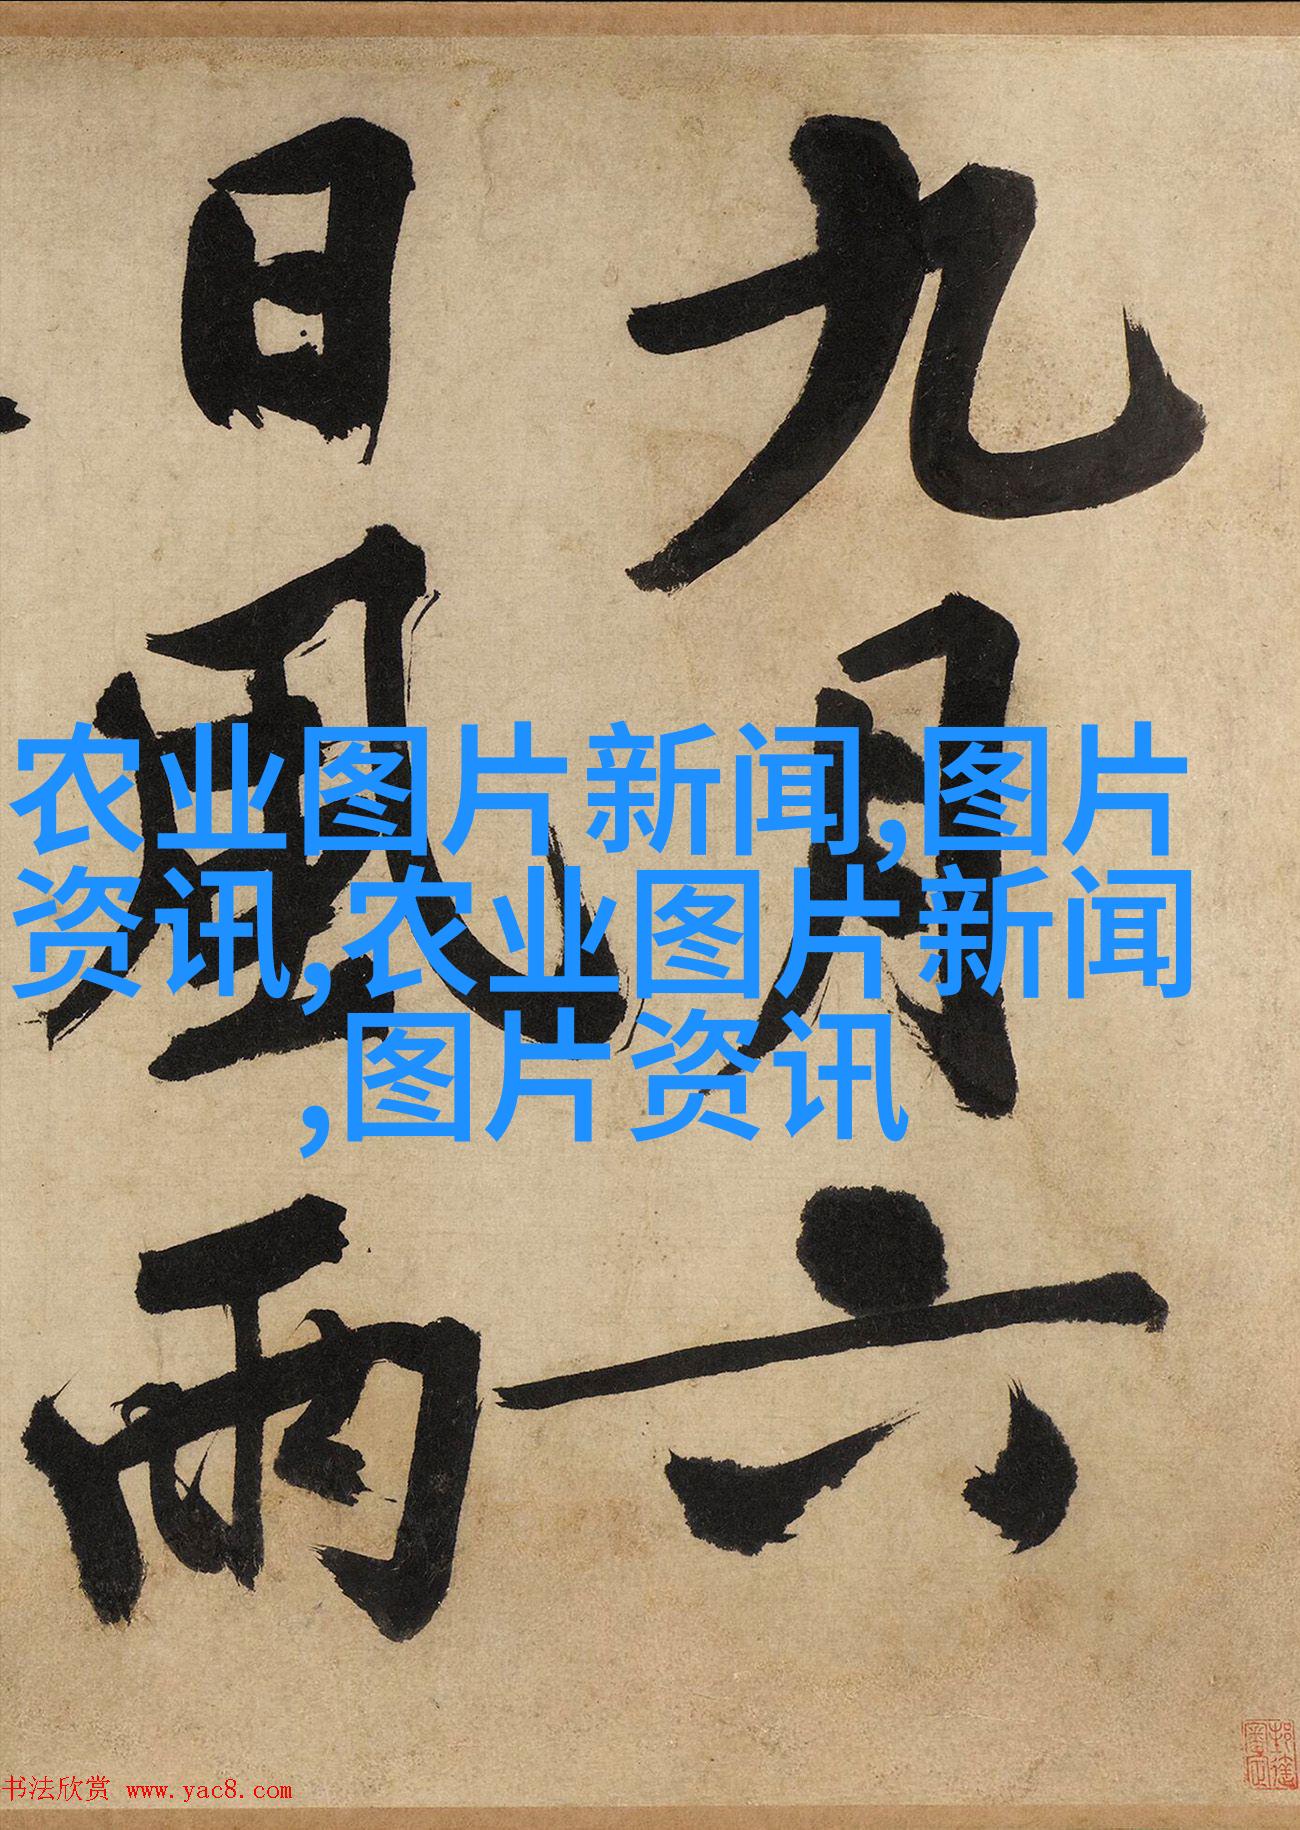 九月六
日風雨
农业图片新闻,图片
资讯,农业图片新闻
,图片资讯
书法欣赏 www.yac8.com